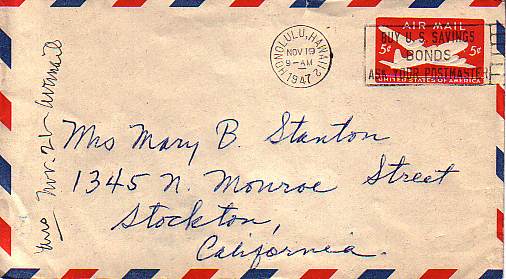 HONOLULU, HAWAII 2
NOV 19
9-AM
1947
AIR MAIL
5¢ 5¢
UNITED STATES OF AMERICA
BUY U.S. SAVINGS
BONDS
ASK YOUR POSTMASTER
Mrs Mary B. Stanton
1345 N. Monroe Street
Stockton,
California.
Nov. 21